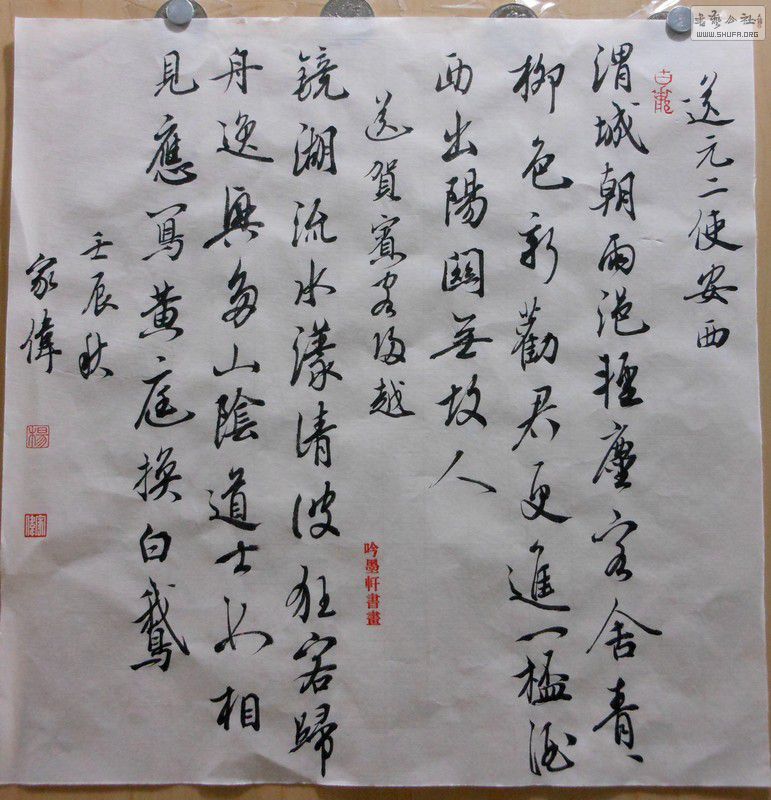 送元二使安西
渭城朝雨浥輕塵客舍青〻
柳色新勸君更進一杯酒
西出陽關無故人
送賀賓客歸越
鏡湖流水漾清波狂客歸
舟逸興多山陰道士如相
見應寫黃庭換白鵝
壬辰秋
家偉
楊
家偉
吟墨軒書畫
书艺公社
WWW.SHUFA.ORG